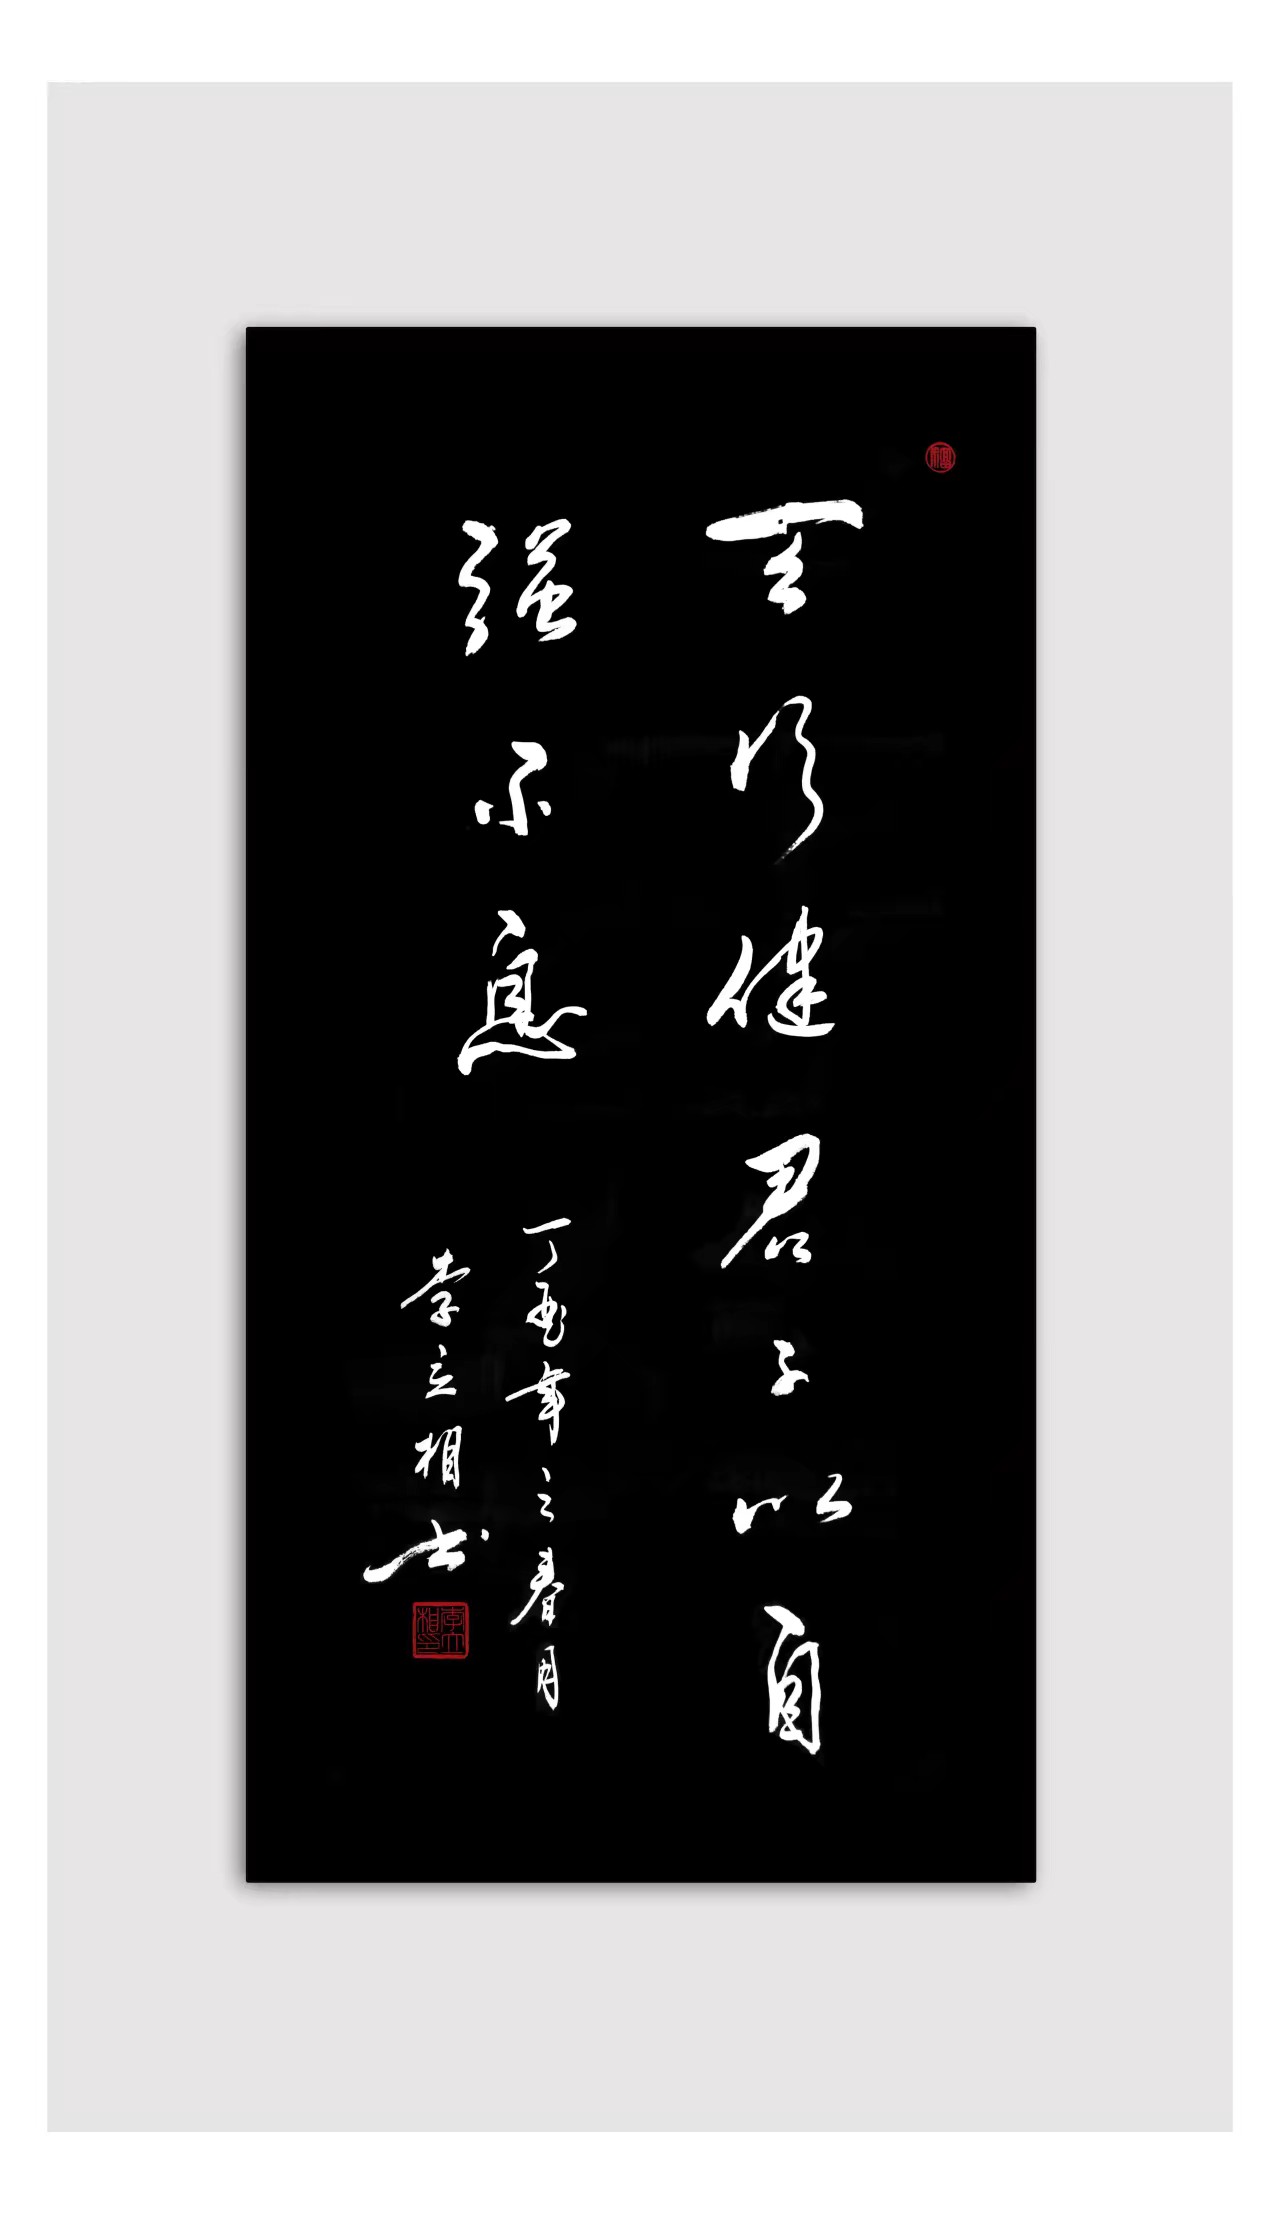 天行健君子以自
强不息
丁酉年之春月
李立相书
李立相印